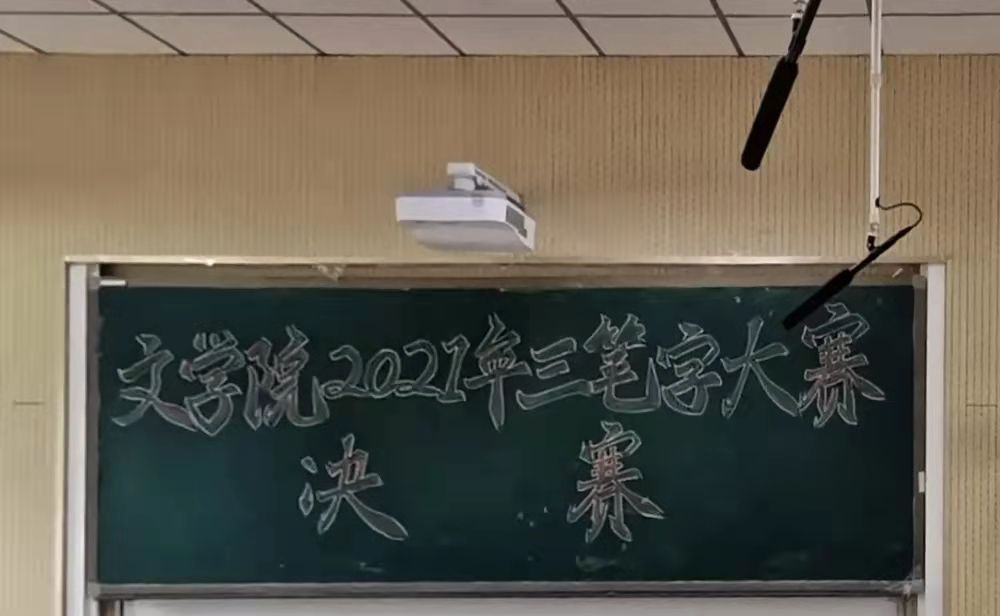 文学院2021年三笔字大赛
决赛